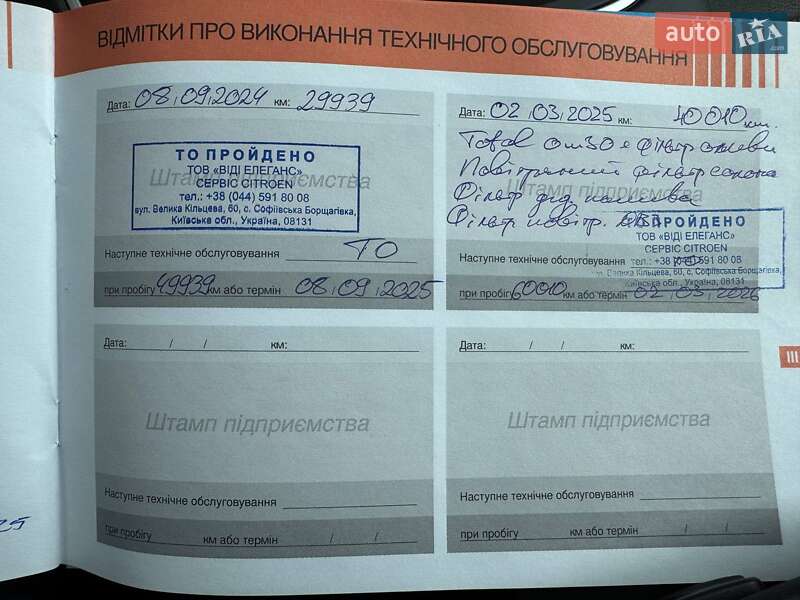 auto RIA.com
ВІДМІТКИ ПРО ВИКОНАННЯ ТЕХНІЧНОГО ОБСЛУГОВУВАННЯ
Дата: 08.09.2024 км: 29939
ТО ПРОЙДЕНО
ТОВ «ВІДІ ЕЛЕГАНС»
СЕРВІС CITROEN
тел.: +38 (044) 591 80 08
вул. Велика Кільцева, 60, с. Софіївська Борщагівка,
Київська обл., Україна, 08131
Штамп підприємства
Наступне технічне обслуговування ТО
при пробігу 49939 км або термін 08.09.2025
Дата: 02.03.2025 км: 40010 км.
фільтр оливи
Повітряний фільтр салона
Фільтр
Фільтр повітр.
ТО ПРОЙДЕНО
ТОВ «ВІДІ ЕЛЕГАНС»
СЕРВІС CITROEN
тел.: +38 (044) 591 80 08
вул. Велика Кільцева, 60, с. Софіївська Борщагівка,
Київська обл., Україна, 08131
Штамп підприємства
Наступне технічне обслуговування
при пробігу 60010 км або термін 02.03.2026
Дата: / / км:
Штамп підприємства
Наступне технічне обслуговування
при пробігу км або термін / /
Дата: / / км:
Штамп підприємства
Наступне технічне обслуговування
при пробігу км або термін / /
III
25